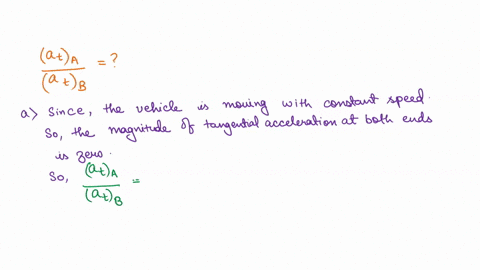 (at)A / (at)B = ?
a> Since, the vehicle is moving with constant speed.
So, the magnitude of tangential acceleration at both ends
is zero.
So, (at)A / (at)B =